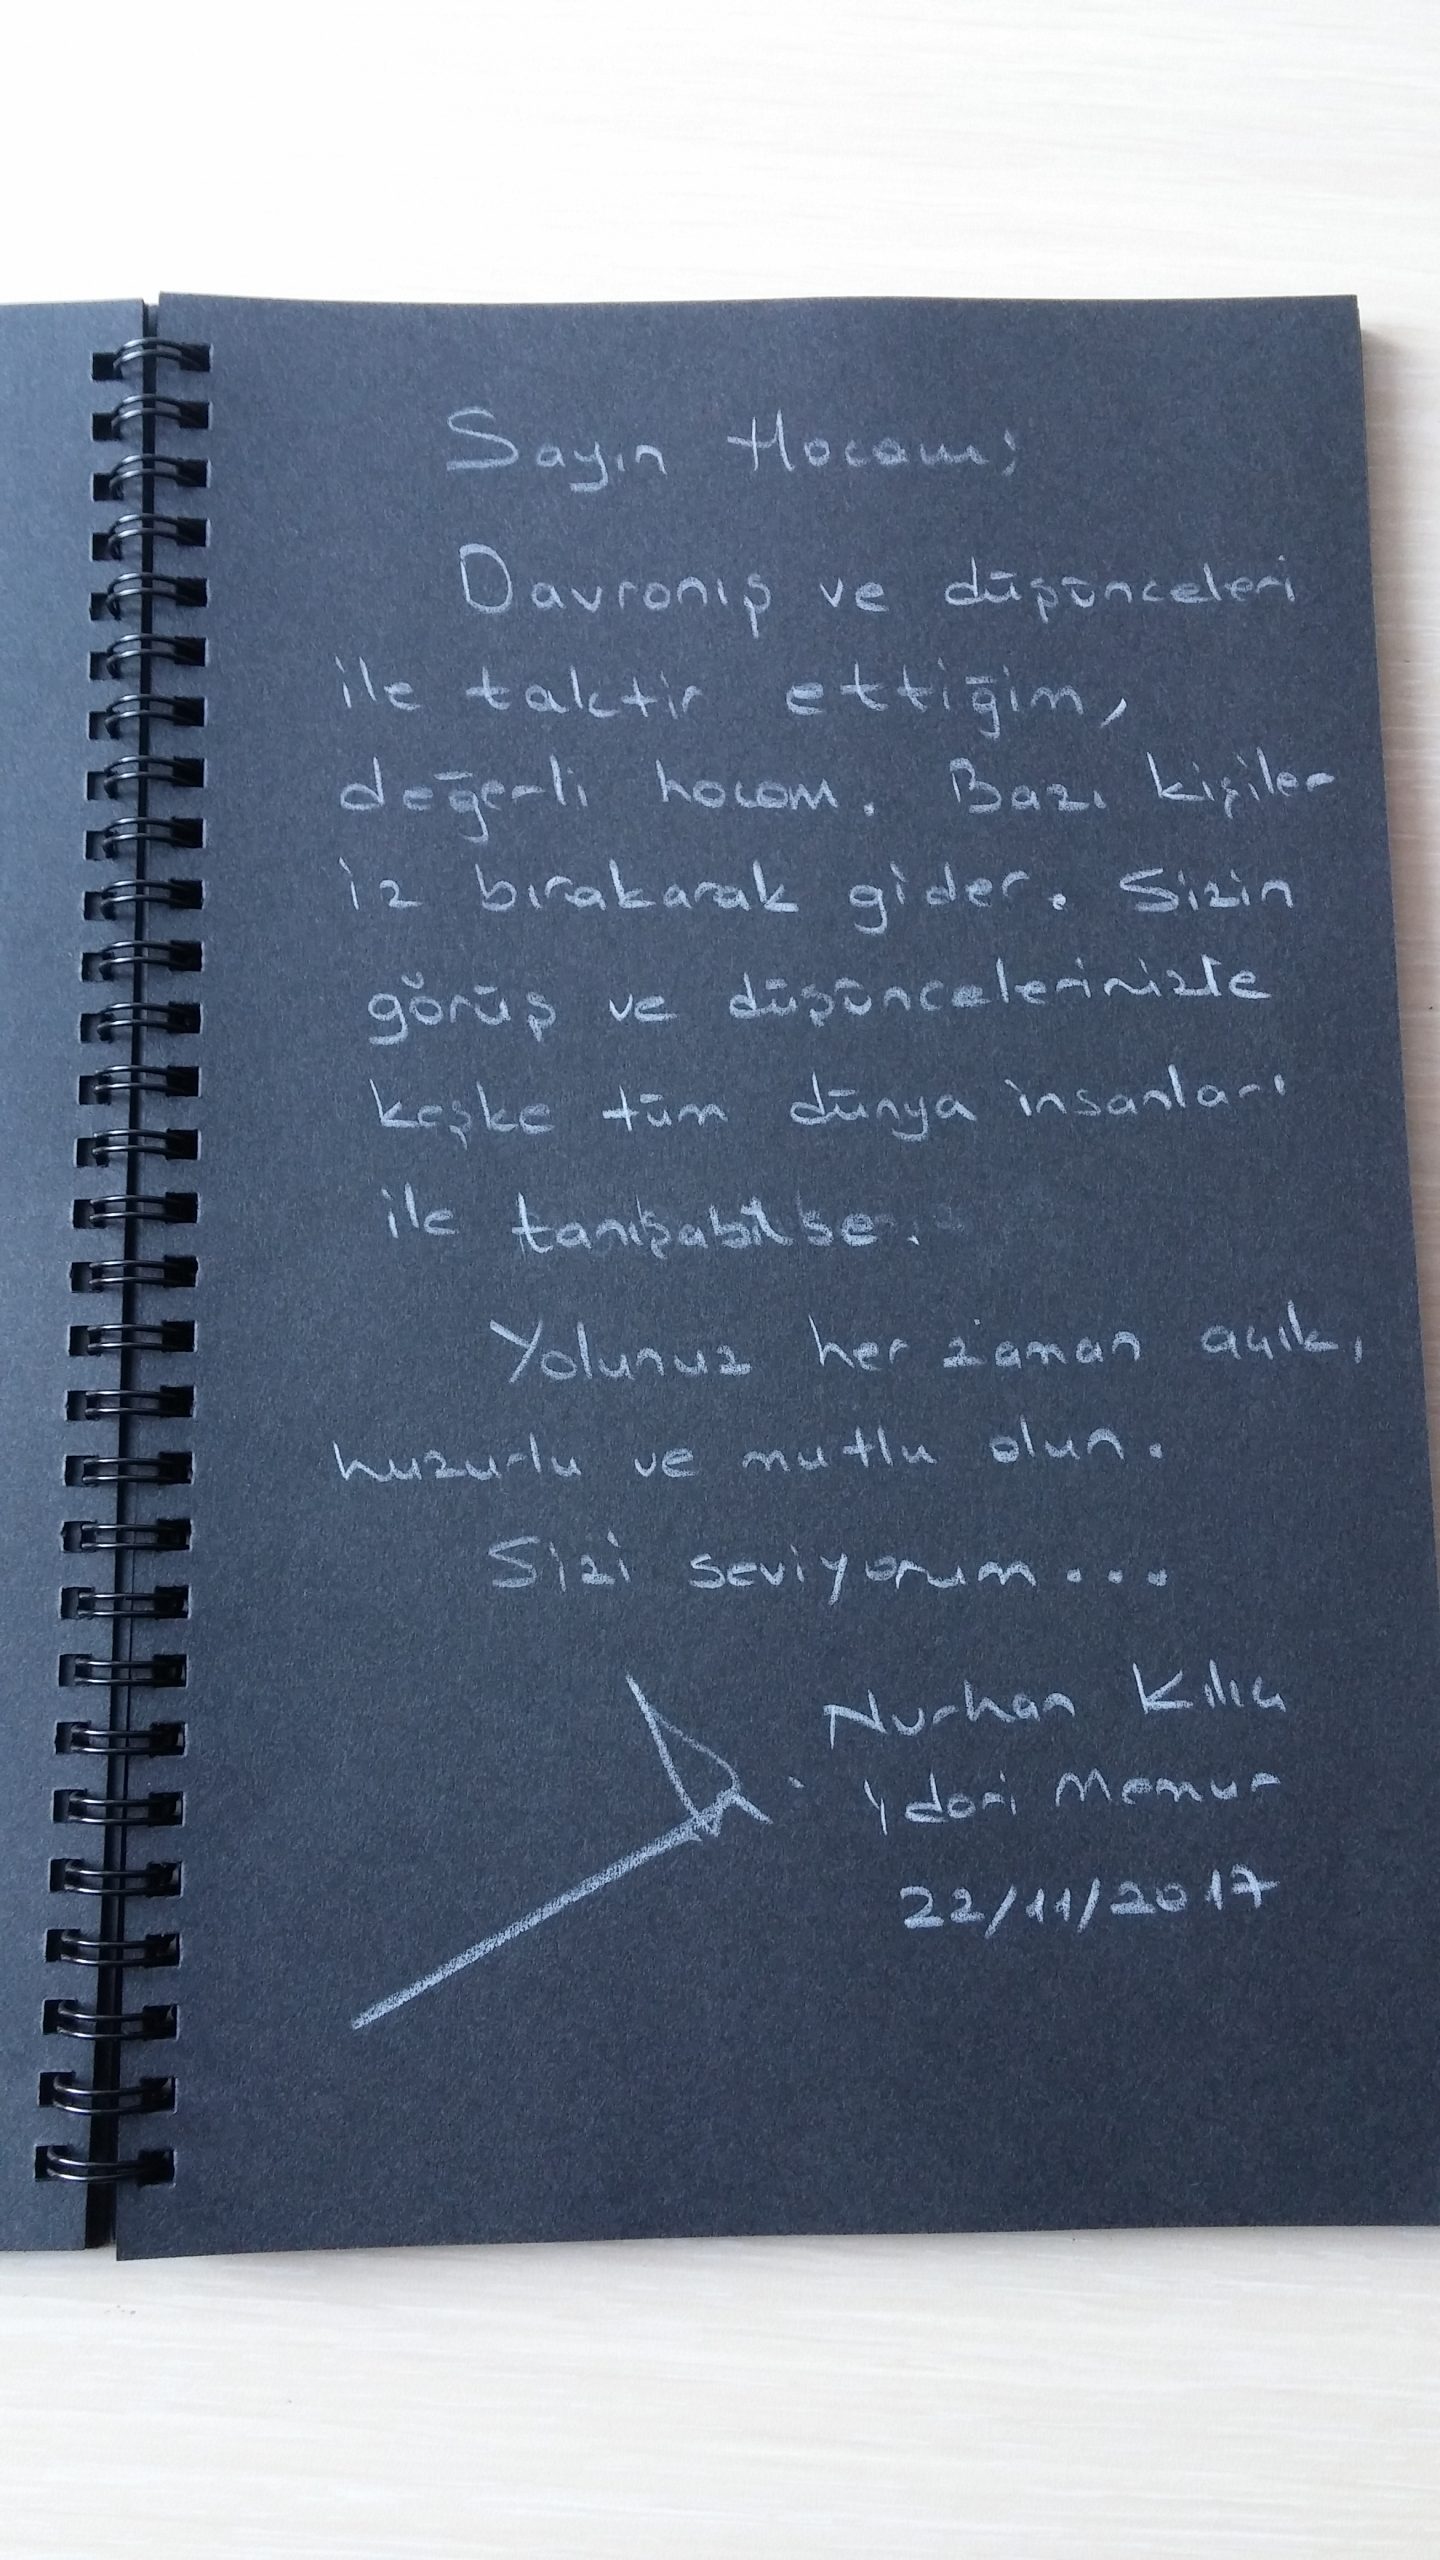 Sayın Hocam;
Davranış ve düşünceleri
ile taktir ettiğim,
değerli hocam. Bazı kişiler
iz bırakarak gider. Sizin
görüş ve düşüncelerinizle
keşke tüm dünya insanları
ile tanışabilse.
Yolunuz her zaman açık,
huzurlu ve mutlu olun.
Sizi seviyorum...
Nurhan Kılıç
İdari Memur
22/11/2017